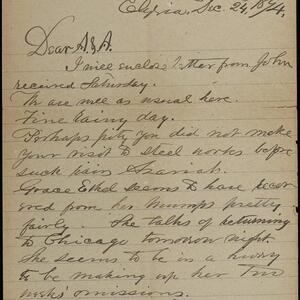 Elyria, Dec. 24, 1894,
Dear A & A.
I will enclose letter from John
received Saturday.
We are well as usual here.
Fine rainy day.
Perhaps pity you did not make
your visit to steel works before
such rain
Grace Ethel seems to have recov
ered from her mumps pretty
fairly. She talks of returning
to Chicago tomorrow night.
She seems to be in a hurry
to be making up her two
weeks' omissions.